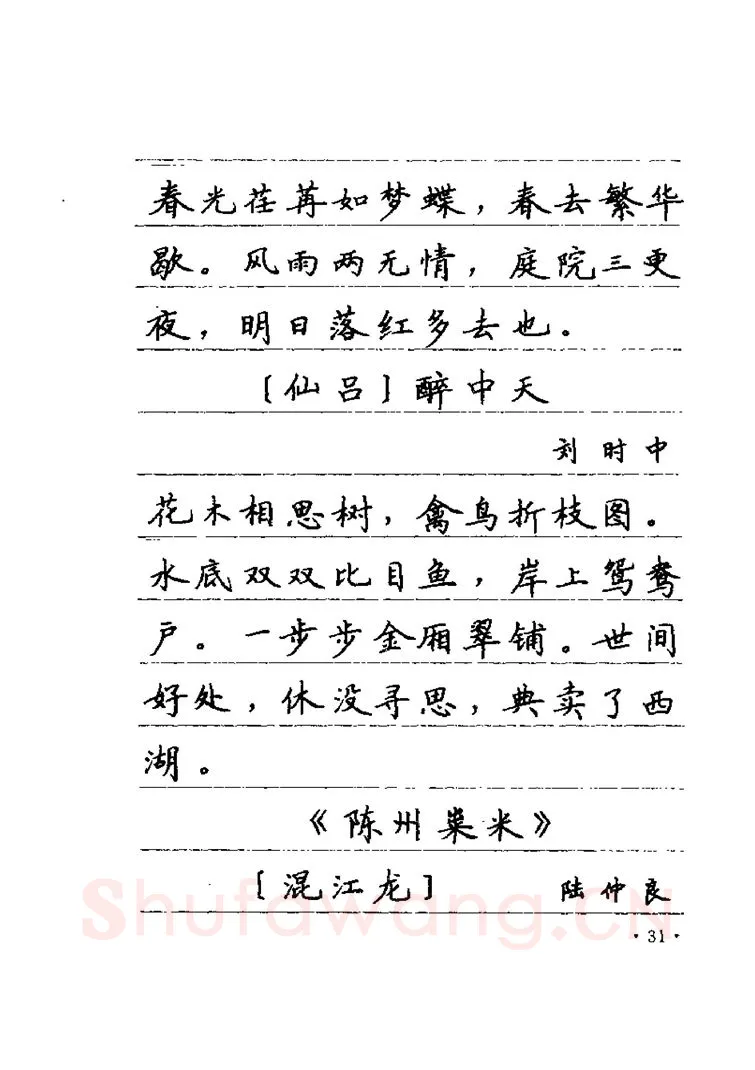 春光荏苒如梦蝶，春去繁华
歇。风雨两无情，庭院三更
夜，明日落红多去也。
［仙吕］醉中天
刘时中
花木相思树，禽鸟折枝图。
水底双双比目鱼，岸上鸳鸯
户。一步步金厢翠铺。世间
好处，休没寻思，典卖了西
湖。
《陈州粜米》
［混江龙］ 陆仲良
Shufawang.CN
·31·